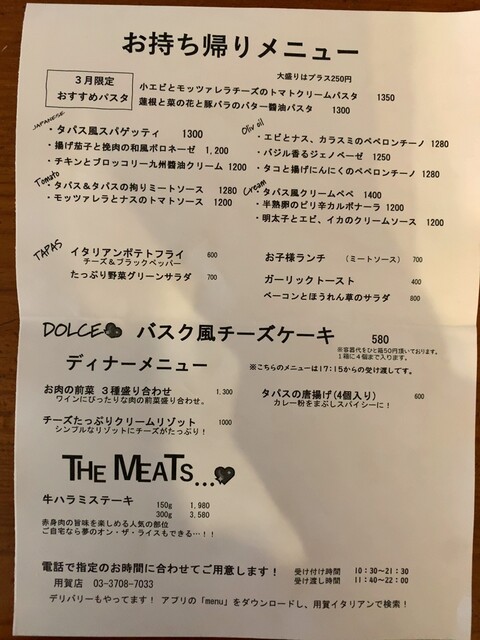 お持ち帰りメニュー
大盛りはプラス250円
3月限定
おすすめパスタ
小エビとモッツァレラチーズのトマトクリームパスタ 1350
蓮根と菜の花と豚バラのバター醬油パスタ 1300
JAPANESE
・タパス風スパゲッティ 1300
・揚げ茄子と挽肉の和風ボロネーゼ 1,200
・チキンとブロッコリー九州醬油クリーム 1200
Olive oil
・エビとナス、カラスミのペペロンチーノ 1280
・バジル香るジェノベーゼ 1250
・タコと揚げにんにくのペペロンチーノ 1280
Tomato
・タパス&タパスの拘りミートソース 1280
・モッツァレラとナスのトマトソース 1200
Cream
・タパス風クリームペペ 1400
・半熟卵のピリ辛カルボナーラ 1200
・明太子とエビ、イカのクリームソース 1200
TAPAS
イタリアンポテトフライ 600
チーズ&ブラックペッパー
たっぷり野菜グリーンサラダ 700
お子様ランチ (ミートソース) 700
ガーリックトースト 400
ベーコンとほうれん草のサラダ 800
DOLCE バスク風チーズケーキ 580
※容器代をひと箱50円頂いております。
1箱に4個まで入ります。
ディナーメニュー
※こちらのメニューは17:15からの受け渡しです。
お肉の前菜 3種盛り合わせ 1,300
ワインにぴったりなお肉の前菜盛り合わせ。
チーズたっぷりクリームリゾット 1000
シンプルなリゾットにチーズがたっぷり!
タパスの唐揚げ(4個入り) 600
カレー粉をまぶしスパイシーに!
THE MEATS...
牛ハラミステーキ
150g 1,980
300g 3,580
赤身肉の旨味を楽しめる人気の部位
ご自宅なら夢のオン・ザ・ライスもできる…!!
電話で指定のお時間に合わせてご用意します!
用賀店 03-3708-7033
受け付け時間 10:30~21:30
受け渡し時間 11:40~22:00
デリバリーもやってます! アプリの「menu」をダウンロードし、用賀イタリアンで検索!